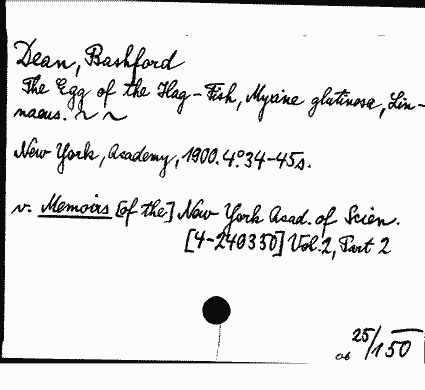 Dean, Bashford
The Egg of the Hag-Fish, Myxine glutinosa, Lin-
naeus. ~ ~
New York, Academy, 1900. 4° 34-45s.
v. Memoirs [of the] New York Acad. of Scien.
[4-240350] Vol. 2, Part 2
25/150